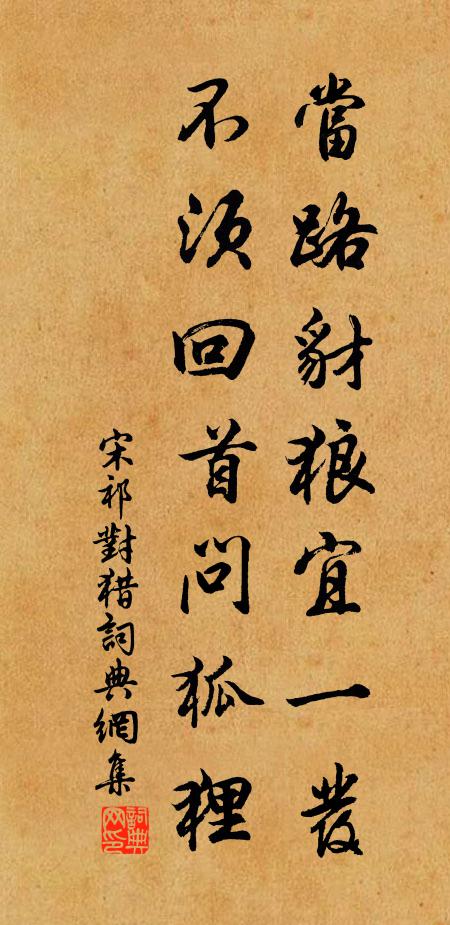 當路豺狼宜一發
不須回首問狐狸
宋祁對猎詞典網集
詞典网印